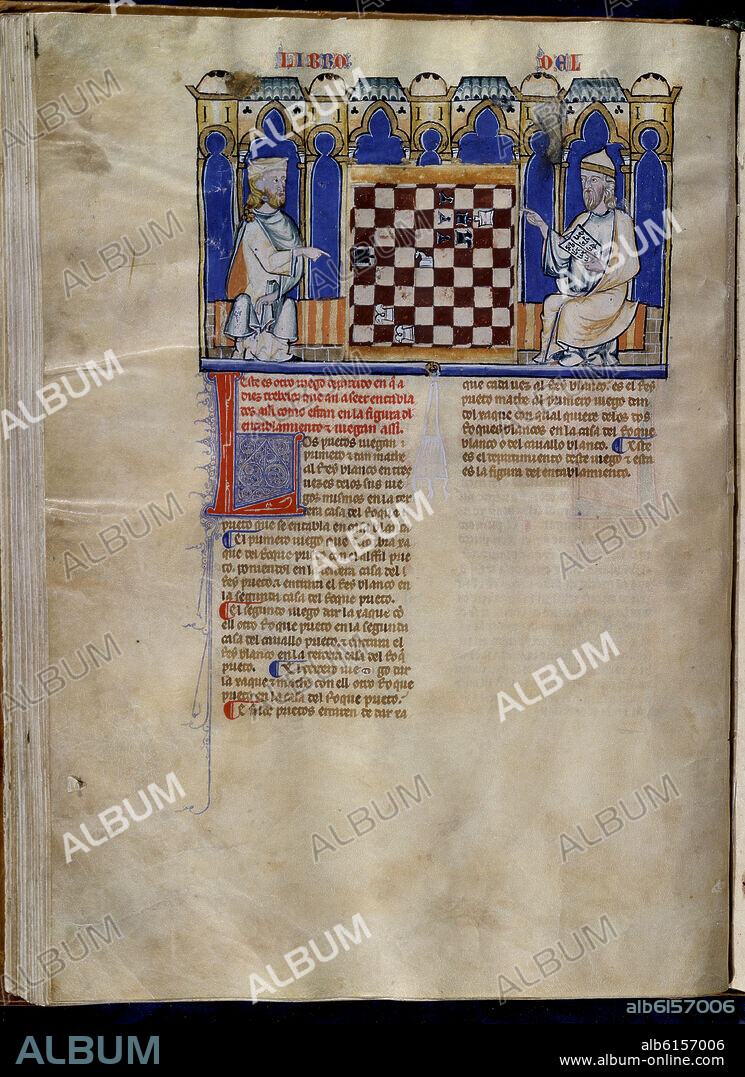 LIBRO DEL
Este es otro iuego departido en que a
diez trebeios que an a seer entabla
dos assi como estan en la figura del
entablamiento & iuegan assi.
Los prietos iuegan
primero & dan mathe
al Rey blanco en tres
uezes delos sus iue
gos mismos en la ter
cera casa del Roque
prieto que se entabla en casa blanca
El primero iuego
que del Roque prieto en el alffil prie
to. poniendol en la tercera casa del
Rey prieto & entrara el Rey blanco en
la segunda casa del Roque prieto.
El segundo iuego dar la xaque con
ell otro Roque prieto en la segunda
casa del cauallo prieto. & entrara el
Rey blanco en la tercera casa del Roque
prieto. El tercero iuego dar
la xaque & mathe con ell otro Roque
prieto en la casa del Roque prieto.
E si los prietos erraren de dar xa
que cada uez al Rey blanco. es el Rey
prieto mathe al primero iuego dan
dol xaque con qual quiere delos dos
Roques blancos en la casa del Roque
blanco o del cauallo blanco. Et este
es el departimiento deste iuego & esta
es la figura del entablamiento.
ALBUM
alb6157006
ALBUM
alb6157006
www.album-online.com